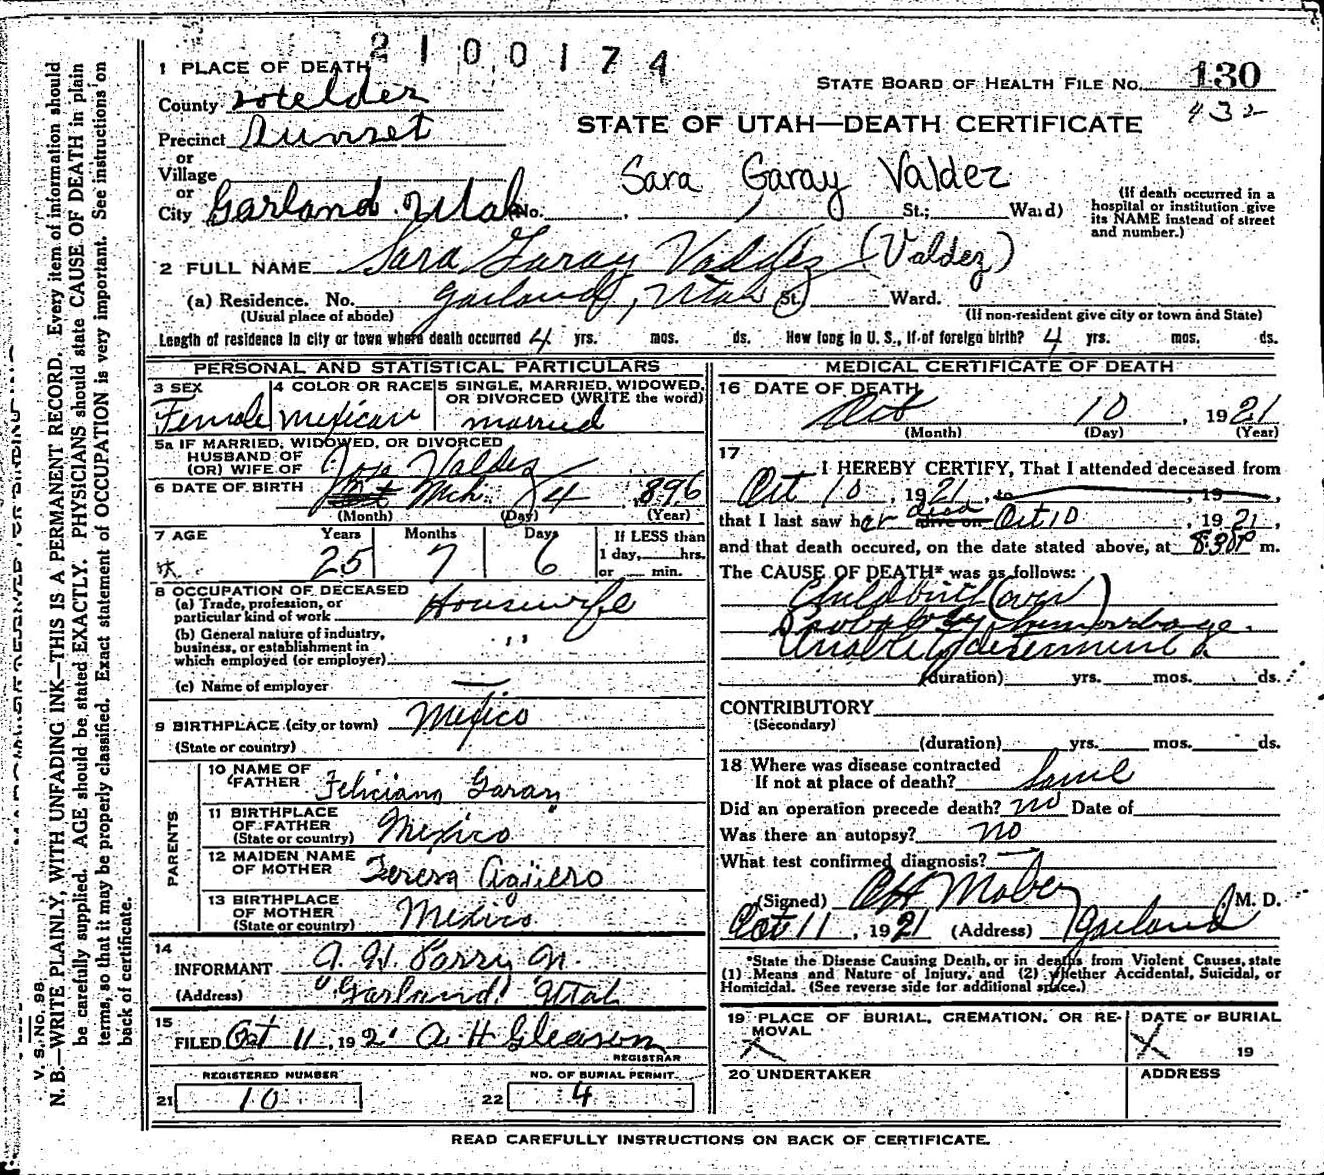 2100174
1 PLACE OF DEATH
STATE BOARD OF HEALTH FILE No. 130
432
County Boxelder
STATE OF UTAH—DEATH CERTIFICATE
Precinct Sunset
or
Village
Sara Garay Valdez
or
City Garland Utah No. St.; Ward)
(If death occurred in a
hospital or institution give
its NAME instead of street
and number.)
2 FULL NAME Sara Garay Valdez (Valdez)
(a) Residence. No. Garland, Utah St. Ward.
(Usual place of abode) (If non-resident give city or town and State)
Length of residence in city or town where death occurred 4 yrs. mos. ds. How long in U. S., if of foreign birth? 4 yrs. mos. ds.
PERSONAL AND STATISTICAL PARTICULARS
3 SEX 4 COLOR OR RACE 5 SINGLE, MARRIED, WIDOWED,
OR DIVORCED (WRITE the word)
Female Mexican married
5a IF MARRIED, WIDOWED, OR DIVORCED
HUSBAND OF
(OR) WIFE OF Valdez
6 DATE OF BIRTH Mch 4 1896
(Month) (Day) (Year)
7 AGE Years Months Days If LESS than
1 day, hrs.
25 7 6 or min.
8 OCCUPATION OF DECEASED
(a) Trade, profession, or
particular kind of work Housewife
(b) General nature of industry,
business, or establishment in
which employed (or employer)
(c) Name of employer —
9 BIRTHPLACE (city or town) Mexico
(State or country)
PARENTS
10 NAME OF
FATHER Feliciano Garay
11 BIRTHPLACE
OF FATHER
(State or country) Mexico
12 MAIDEN NAME
OF MOTHER Teresa Agüero
13 BIRTHPLACE
OF MOTHER
(State or country) Mexico
14
INFORMANT A. W. Parry
(Address) Garland Utah
15
FILED Oct 11, 192' A H Gleason
REGISTRAR
REGISTERED NUMBER NO. OF BURIAL PERMIT
21 10 22 4
MEDICAL CERTIFICATE OF DEATH
16 DATE OF DEATH
Oct 10, 1921
(Month) (Day) (Year)
17
I HEREBY CERTIFY, That I attended deceased from
Oct 10, 1921, to , 19 ,
that I last saw her dead alive on Oct 10, 1921,
and that death occured, on the date stated above, at 8:30 P m.
The CAUSE OF DEATH* was as follows:
Childbirth (over)
Probably hemorrhage.
Unable to determine
(duration) yrs. mos. ds.
CONTRIBUTORY
(Secondary)
(duration) yrs. mos. ds.
18 Where was disease contracted
If not at place of death? Same
Did an operation precede death? no Date of
Was there an autopsy? no
What test confirmed diagnosis? —
(Signed) M. D.
Oct 11, 1921 (Address) Garland
*State the Disease Causing Death, or in deaths from Violent Causes, state
(1) Means and Nature of Injury, and (2) whether Accidental, Suicidal, or
Homicidal. (See reverse side for additional space.)
19 PLACE OF BURIAL, CREMATION, OR RE-
MOVAL
DATE OF BURIAL
X X 19
20 UNDERTAKER ADDRESS
READ CAREFULLY INSTRUCTIONS ON BACK OF CERTIFICATE.
V. S. No. 98
N. B.—WRITE PLAINLY, WITH UNFADING INK—THIS IS A PERMANENT RECORD. Every item of information should
be carefully supplied. AGE should be stated EXACTLY. PHYSICIANS should state CAUSE OF DEATH in plain
terms, so that it may be properly classified. Exact statement of OCCUPATION is very important. See instructions on
back of certificate.